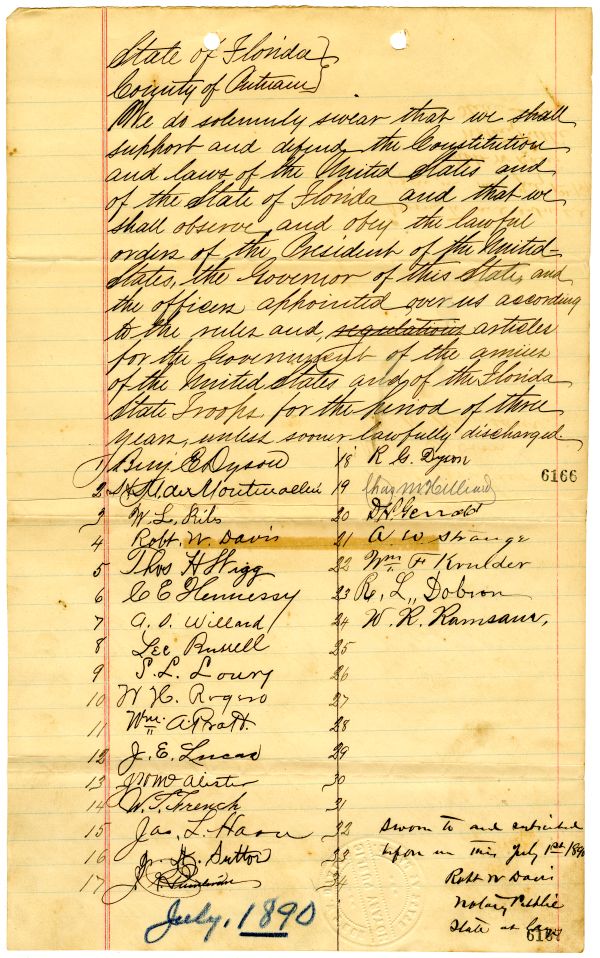 State of Florida }
County of Putnam }
We do solemnly swear that we shall
support and defend the Constitution
and laws of the United States and
of the State of Florida and that we
shall observe and obey the lawful
orders of the President of the United
States, the Governor of this State, and
the officers appointed over us according
to the rules and, regulations articles
for the Government of the armies
of the United States and of the Florida
State Troops for the period of three
years, unless sooner lawfully discharged.
1 Benj E. Dyson
2
3 W. L.
4 Robt. W. Davis
5 Thos H Wigg
6 C E Hennessy
7 A. S. Willard
8 Lee Russell
9 S. L. Loury
10 W. H. Rogero
11 Wm. A. Pratt.
12 J. E. Lucas
13
14 W. T. French
15 Jas. L.
16 Jn. H. Sutton
17
18 R. G. Dyson
6166
19 Chas
20
21 A W Strange
22 Wm F
23 R. L. Dobson
24 W. R. Ramsaur.
25
26
27
28
29
30
31
32
33
34
Sworn to and subscribed
before me this July 1st 1890
Robt W Davis
Notary Public
State at Large
6167
July, 1890